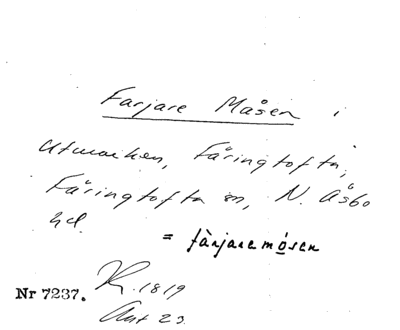 Farjare Måsen i
utmarken, Fåringtofta,
Fåringtofta sn, N. Åsbo
hd.
= färjaremósen
Nr 7237.
R. 1819
Akt 23